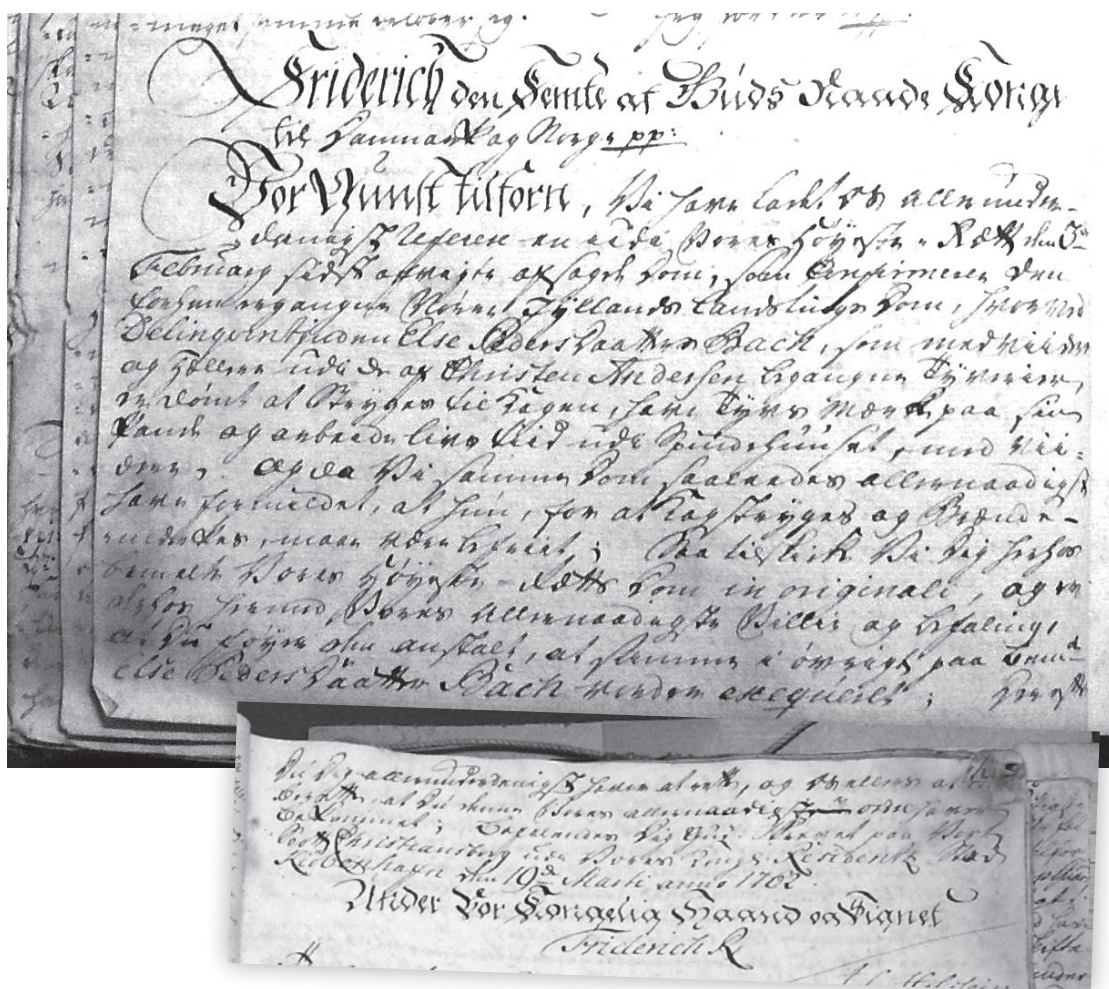 Friderich den Femte af Guds Naade Konge
til Danmark og Norge pp:
Vor Gunst tilforn, Vi have ladet os allerunder-
danigst referere en udi Vores Høyeste-Rætt den 3die
Februarij sidst afvigte afsagde Dom, som Confirmerer den
forhen ergangne Nørre Jyllands Landstings Dom, hvorved
Delinqventinden Else Pedersdaatter Bach, som medviider
og Hælere udi de af Christen Andersen begangne Tyverier,
er dømt at Stryges til Kagen, have Tyvs Mærke paa sin
Pande og arbeide livs tiid udi Spindehuuset, med vii-
dere. Og da Vi samme Dom saaledes allernaadigst
have formildet, at hun, for at Kagstryges og Brænde-
mærkes, maae være befriet; Saa tilskikke Vi dig herhos
bemelte Vores Høyeste-Rætts Dom in originali, og er
derhos hermed Vores allernaadigste Villie og befaling,
at Du føyer den anstalt, at samme i øvrigt paa bemte
Else Pedersdaatter Bach vorder exeqveret; Herefter
Du dig allerunderdanigst haver at rette, og os ellers at
berette, at Du denne Vores allernaadigste ordre haver
bekommet; Befalendes dig Gud. Skrevet paa Vort
Slott Christiansborg udi Vores Kongl: Residentz Stad
Kiøbenhafn den 19de Martii anno 1762.
Under Vor Kongelig Haand og Signet
Friderich R